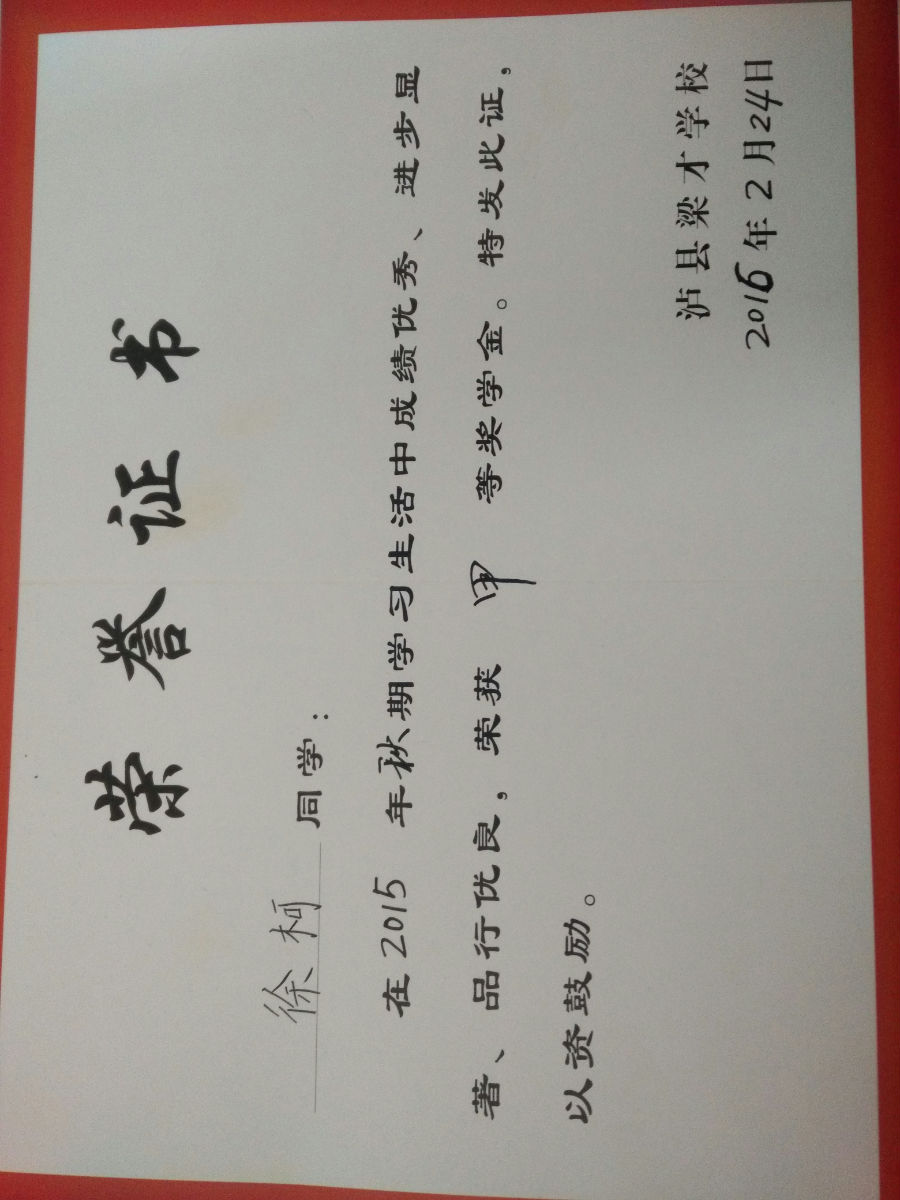 荣誉证书
徐柯同学：
在2015年秋期学习生活中成绩优秀、进步显
著、品行优良，荣获 甲 等奖学金。特发此证，
以资鼓励。
泸县梁才学校
2016年2月24日